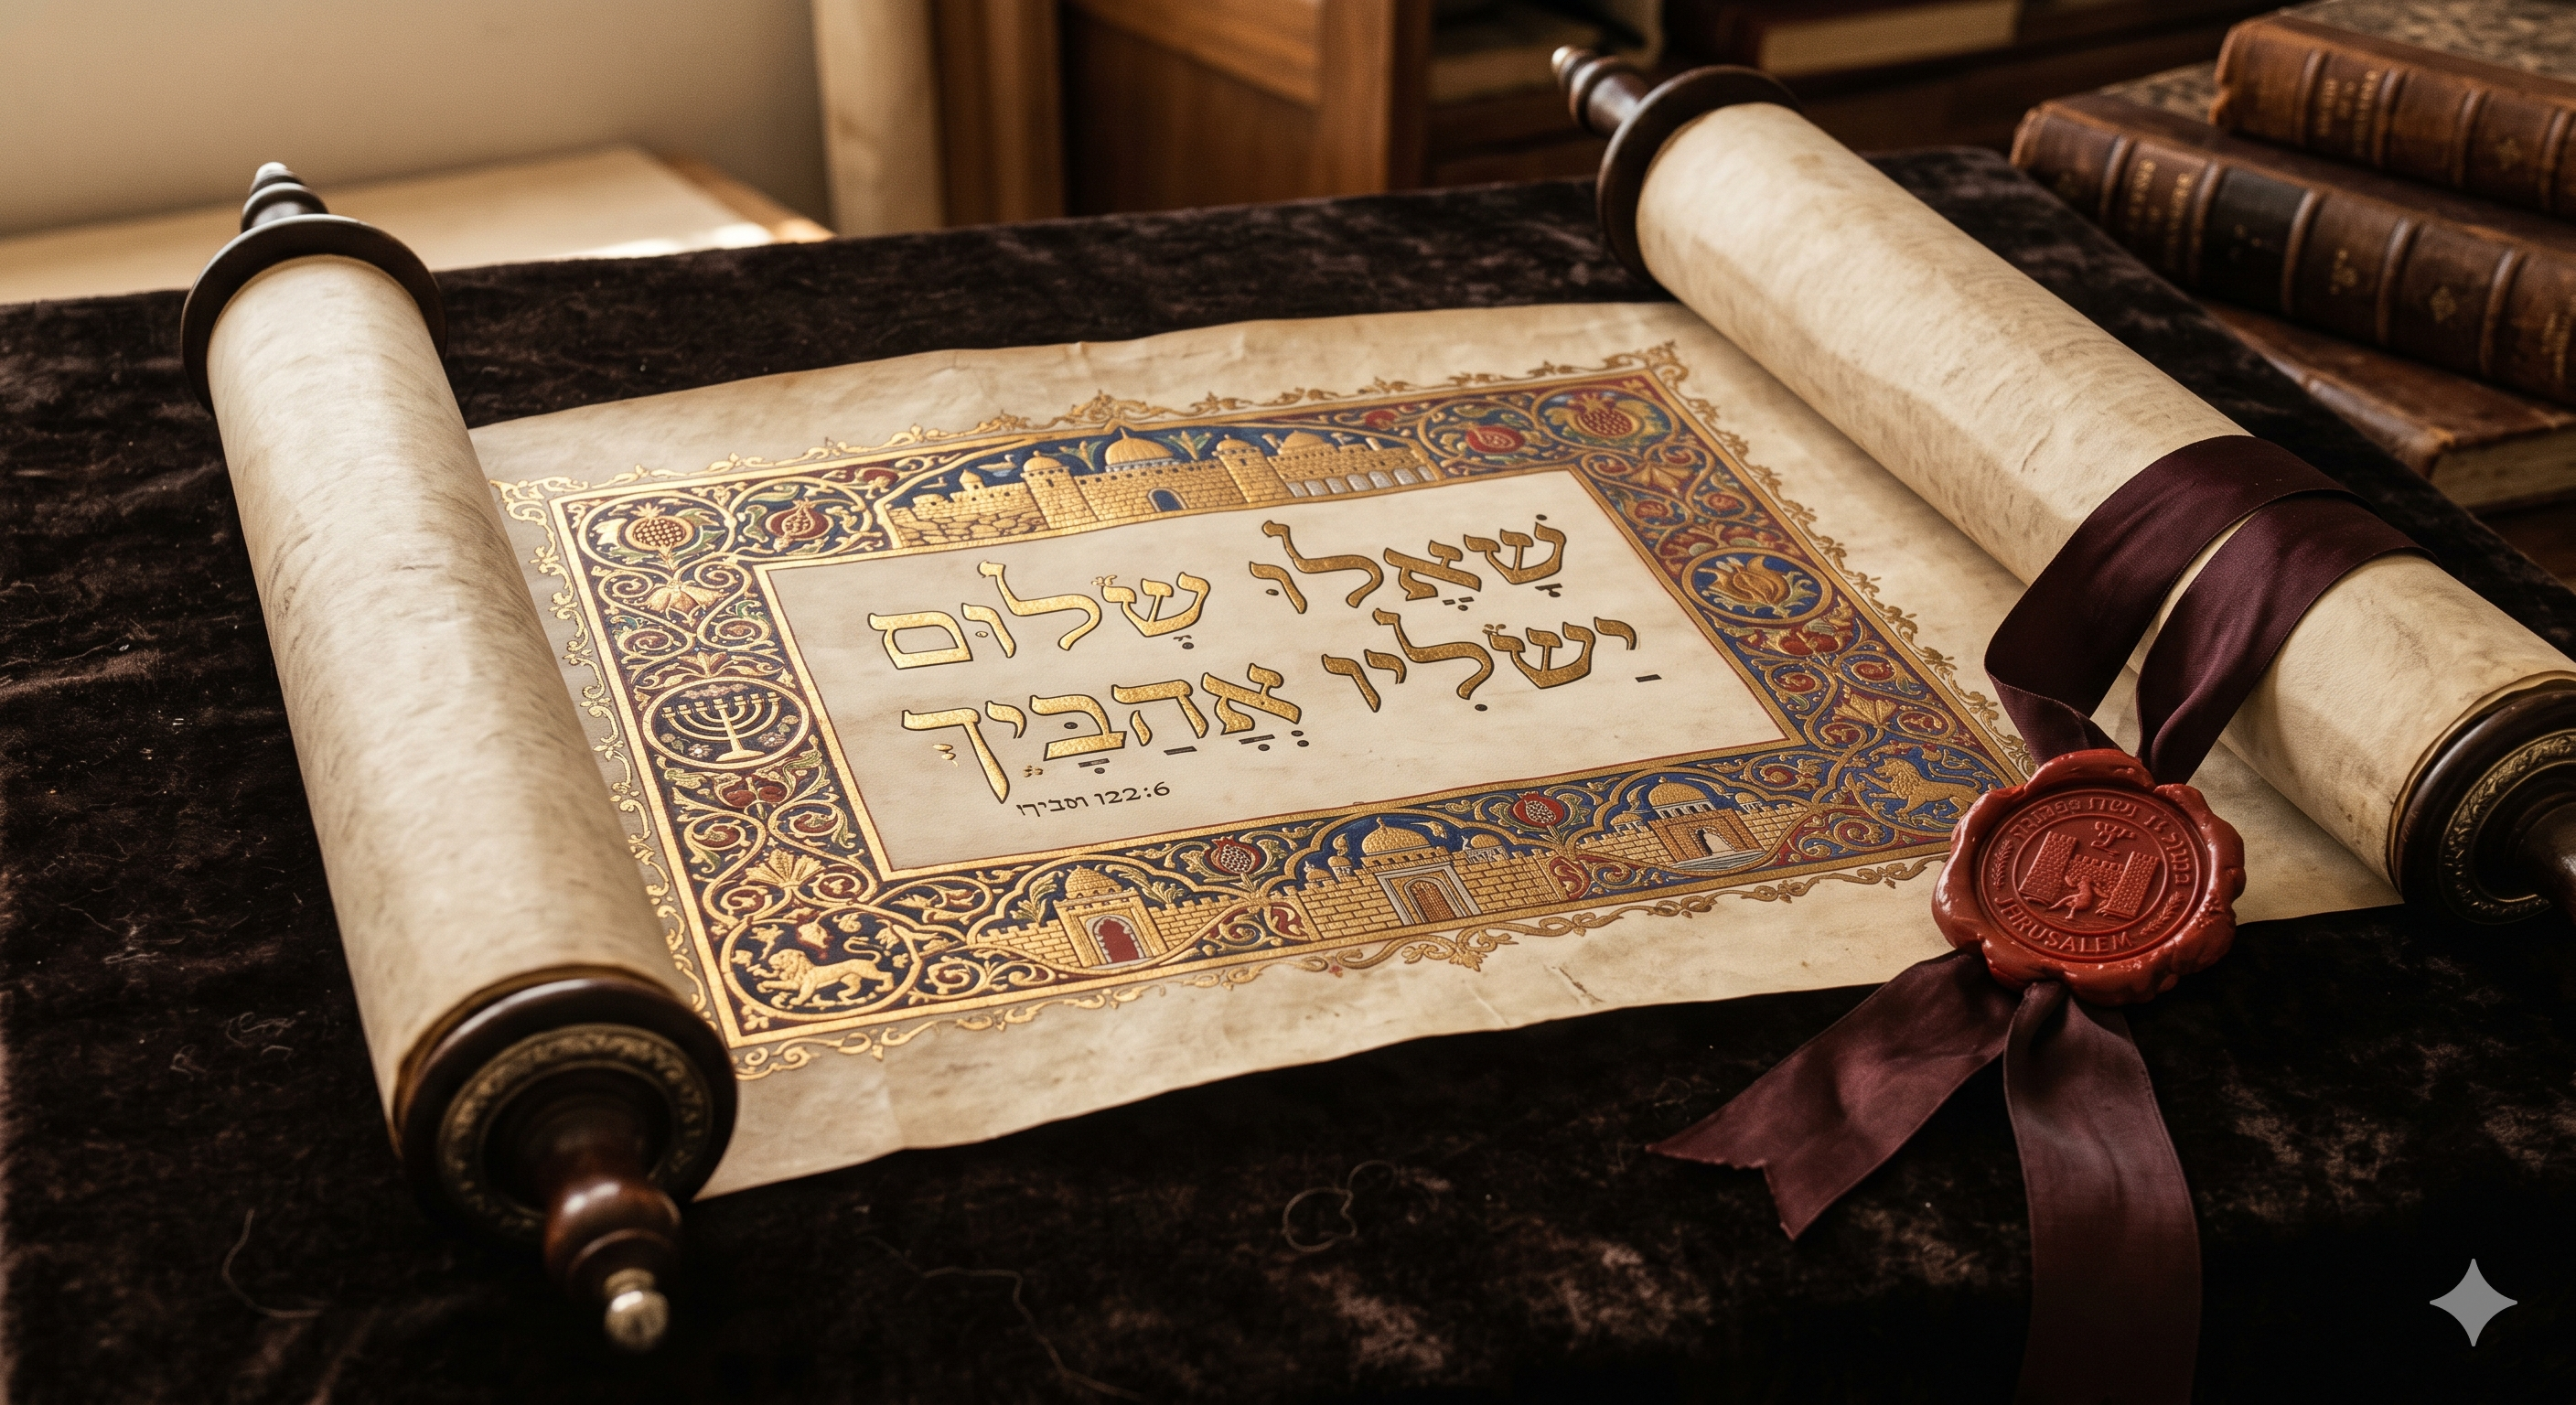 שאלו שלום
ישליו אהביך
122:6
JERUSALEM